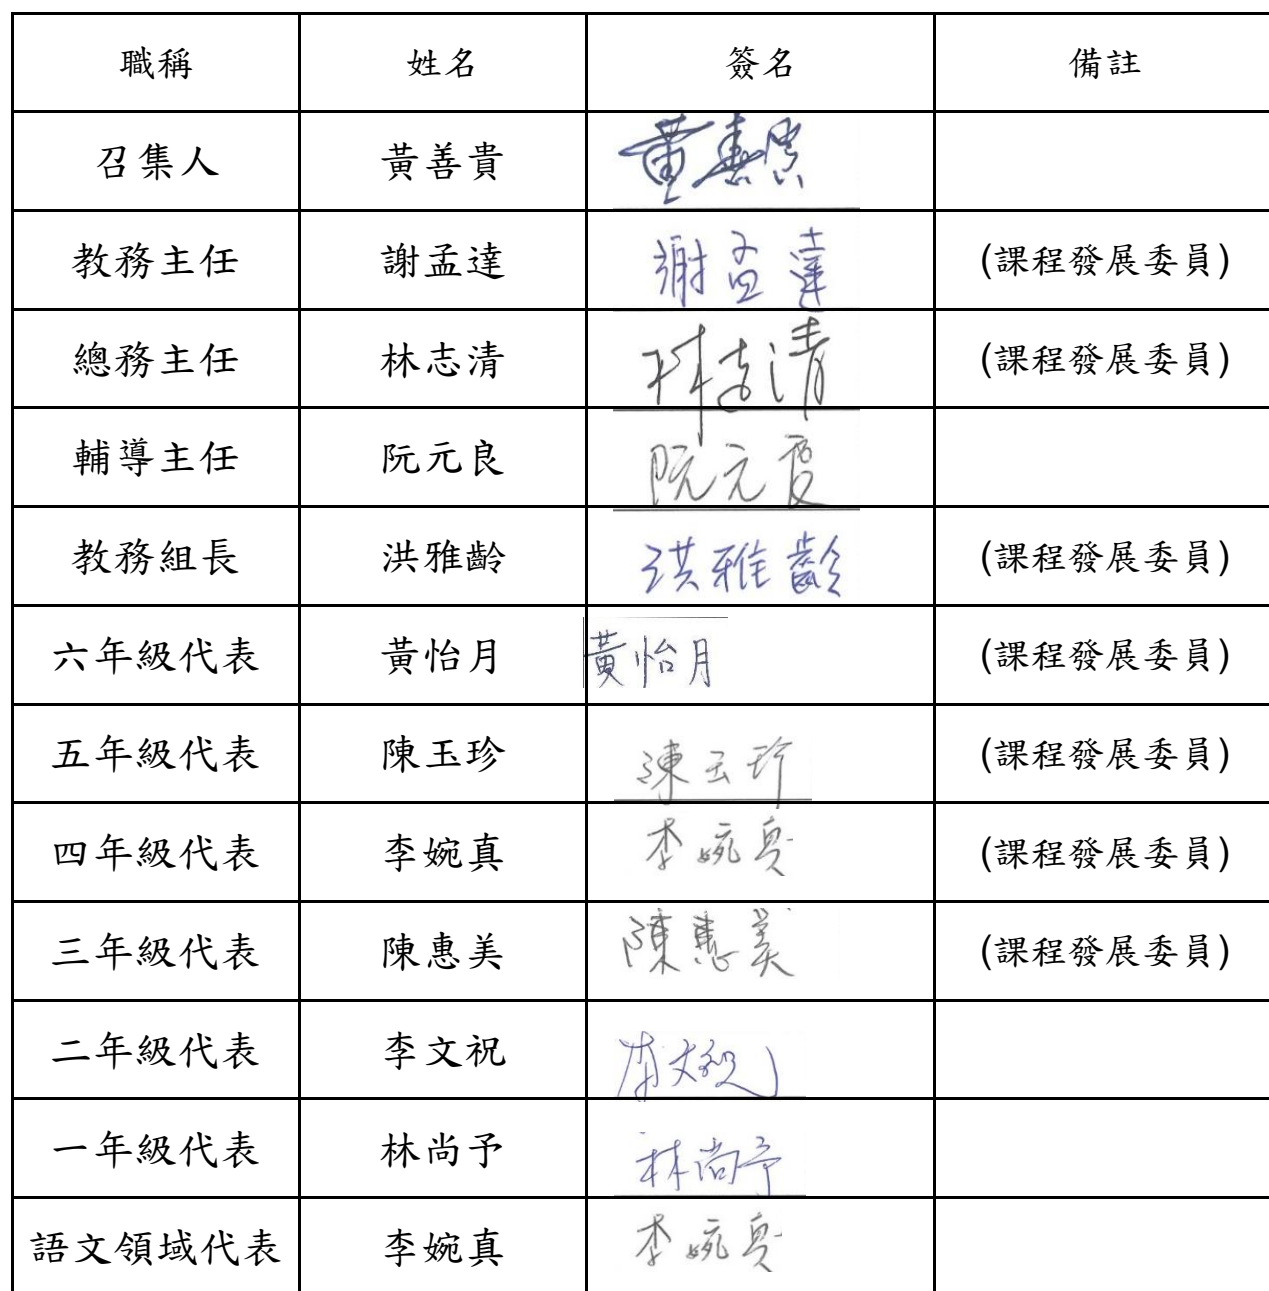 職稱 姓名 簽名 備註
召集人 黃善貴 黃善貴
教務主任 謝孟達 謝孟達 (課程發展委員)
總務主任 林志清 林志清 (課程發展委員)
輔導主任 阮元良 阮元良
教務組長 洪雅齡 洪雅齡 (課程發展委員)
六年級代表 黃怡月 黃怡月 (課程發展委員)
五年級代表 陳玉珍 陳玉珍 (課程發展委員)
四年級代表 李婉真 李婉真 (課程發展委員)
三年級代表 陳惠美 陳惠美 (課程發展委員)
二年級代表 李文祝 李文祝
一年級代表 林尚予 林尚予
語文領域代表 李婉真 李婉真